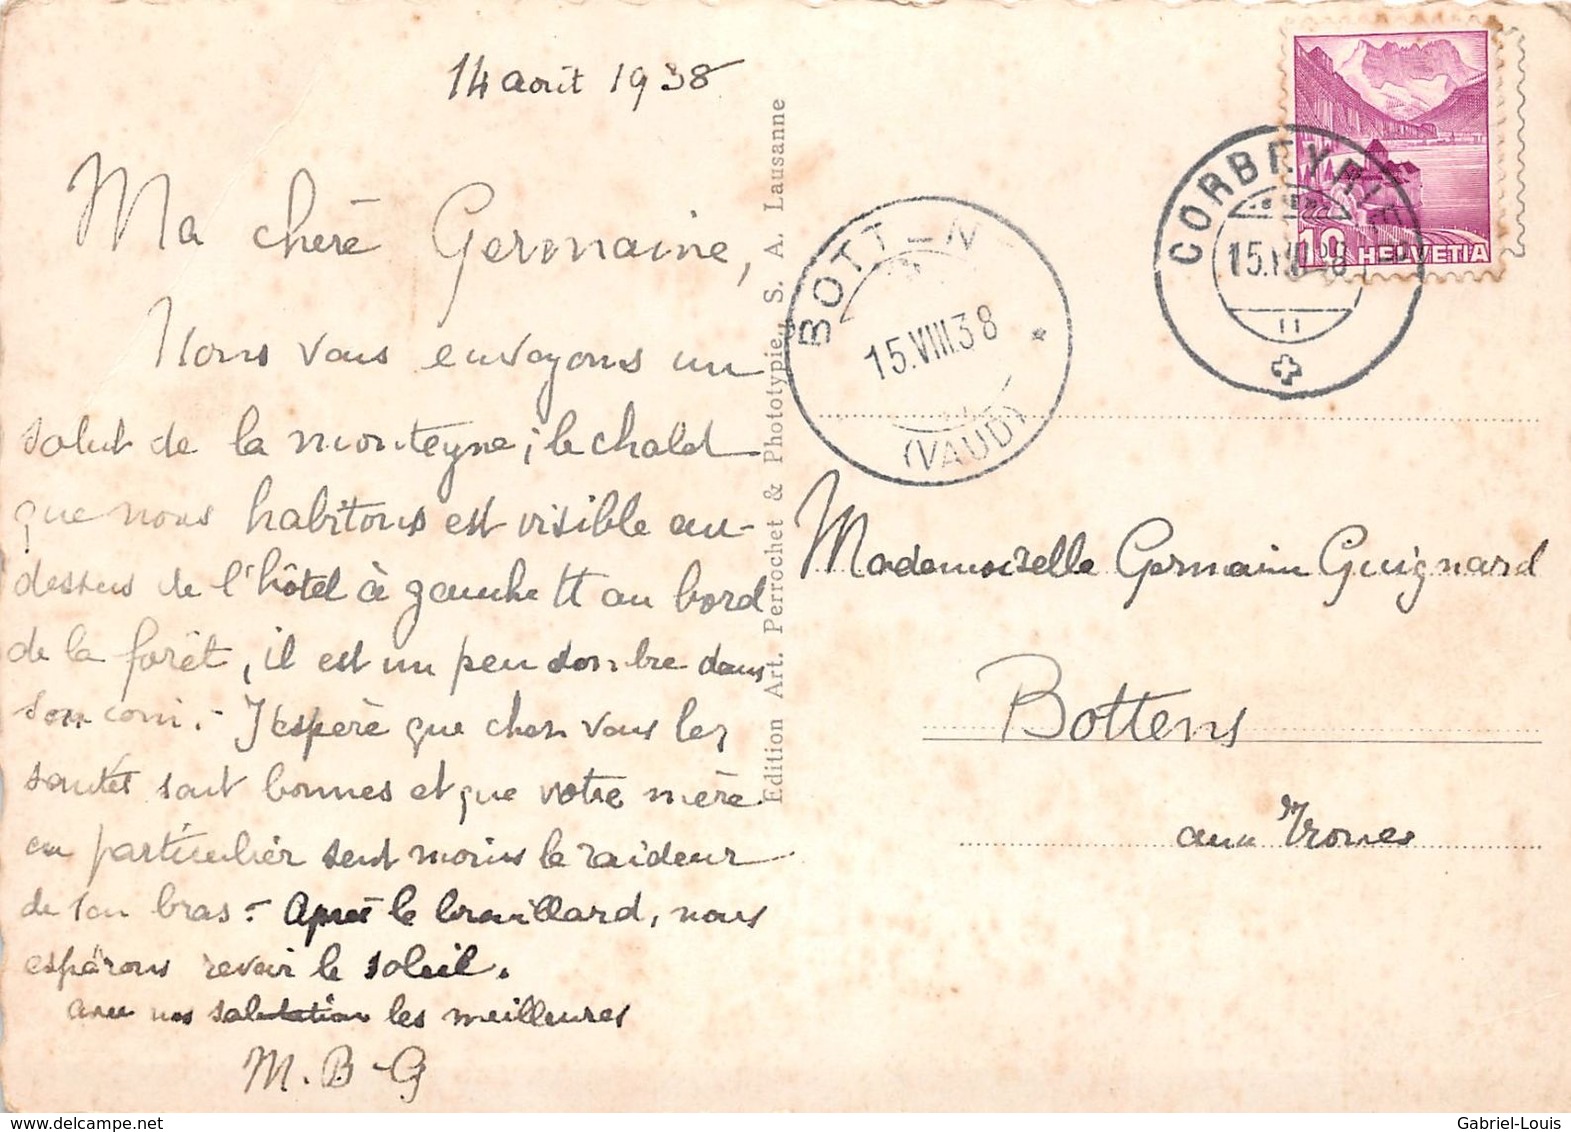 14 août 1938
Ma chère Germaine,
Nous vous envoyons un
salut de la montagne ; le chalet
que nous habitons est visible au-
dessus de l'hôtel à gauche tt au bord
de la forêt, il est un peu sombre dans
son coin. - J'espère que chez vous les
santés sont bonnes et que votre mère
en particulier sent moins la raideur
de son bras. - Après le brouillard, nous
espérons revoir le soleil.
avec nos salutation les meilleures
M. B-G
Edition Art. Perrochet & Phototypie, S. A. Lausanne
BOTT-N
15.VIII.38
(VAUD)
CORBEYRIER
15.VIII.38
10 HELVETIA
Mademoiselle Germaine Guignard
Bottens
aux
Gabriel-Louis